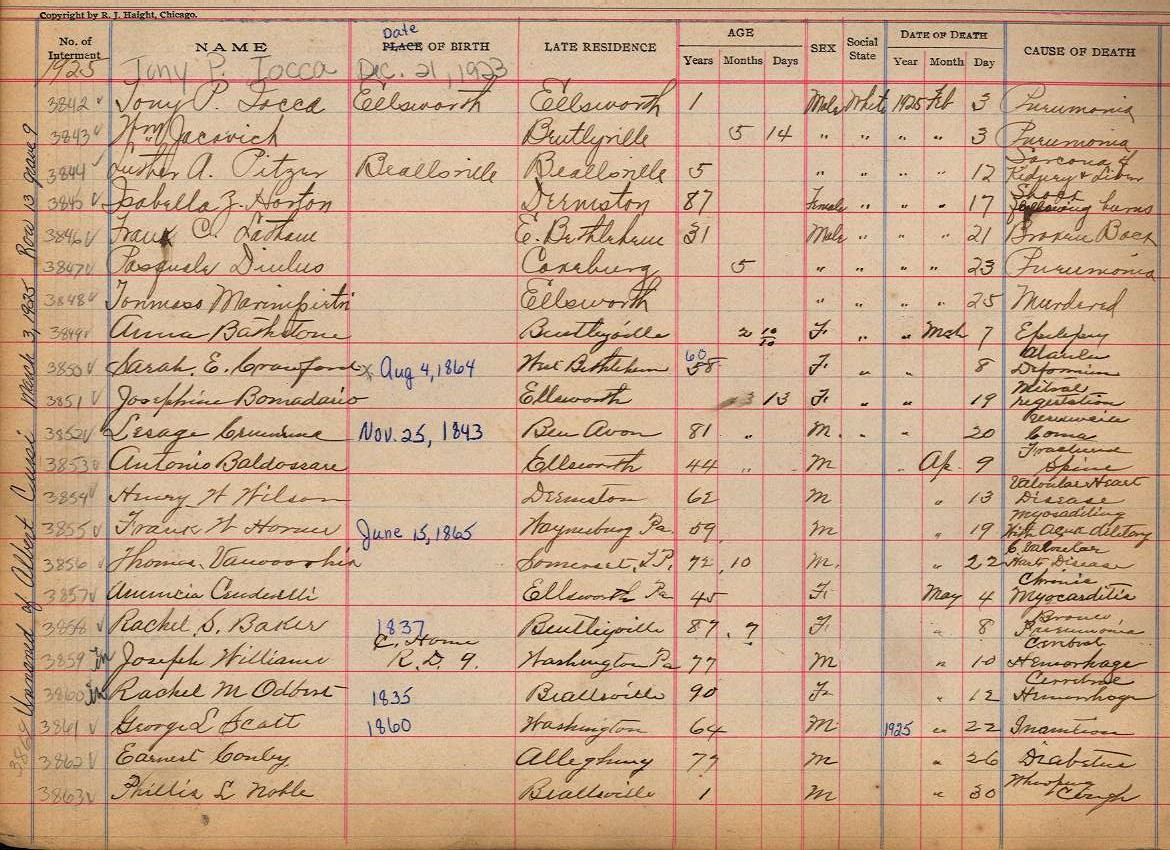 Copyright by R. J. Haight, Chicago.
No. of Interment NAME Date PLACE OF BIRTH LATE RESIDENCE AGE Years Months Days SEX Social State DATE OF DEATH Year Month Day CAUSE OF DEATH
1925 Tony P. Iocca Dec. 21, 1923
3842 Tony P. Iocca Ellsworth Ellsworth 1 Male White 1925 Feb 3 Pneumonia
3843 Wm Jacovich Bentleyville 5 14 " " " " 3 Pneumonia
3844 Luther A. Pitzer Beallsville Beallsville 5 " " " " 12 Sarcoma of Kidney & Liver
3845 Isabella Z. Horton Deemston 87 Female " " " 17 Shock following burns
3846 Frank C. Latham E. Bethlehem 31 Male " " " 21 Broken Back
3847 Pasquale Diulus Cokeburg 5 " " " " 23 Pneumonia
3848 Tommaso Ellsworth " " " " 25 Murdered
3849 Anna Bathstone Bentleyville 2 10/10 F. " " Mch 7 Epilepsy
3850 Sarah. E. Crawford x Aug 4, 1864 West Bethlehem 60 58 F. " " " 8
3851 Josephine Bomadario Ellsworth 3 13 F. " " " 19 Mitral
3852 Lesage Crumrine Nov. 25, 1843 Ben Avon 81 " M. " " 20 Coma
3853 Antonio Baldossare Ellsworth 44 " " M " Ap. 9 Fractured Spine
3854 Henry W Wilson Deemston 62 M " 13 Valvular Heart Disease
3855 Frank W Horner June 15, 1865 Waynesburg Pa. 59 M " 19
3856 Thomas. Somerset, TP. 72 10 M. " 22 C. Valvular Heart Disease
3857 Ellsworth Pa 45 F. May 4 Chronic Myocarditis
3858 Rachel S. Baker 1837 Bentleyville 87 7 F. " 8 Bronco Pneumonia
3859 in Joseph Williams C. Home R. D. 9. Washington Pa 77 M " 10 Hemorrhage
3860 in Rachel M Odbert 1835 Beallsville 90 F. " 12 Cerrebrae Hemorrhage
3861 George L Scatt 1860 Washington 64 M 1925 " 22 Inanition
3862 Earnest Conley Allegheny 77 M " 26 Diabetus
3863 Phillis L Noble Beallsville 1 M " 30 Whooping Cough
3868 Unnamed of Albert Cuisi March 3, 1925 Row 13 grave 9